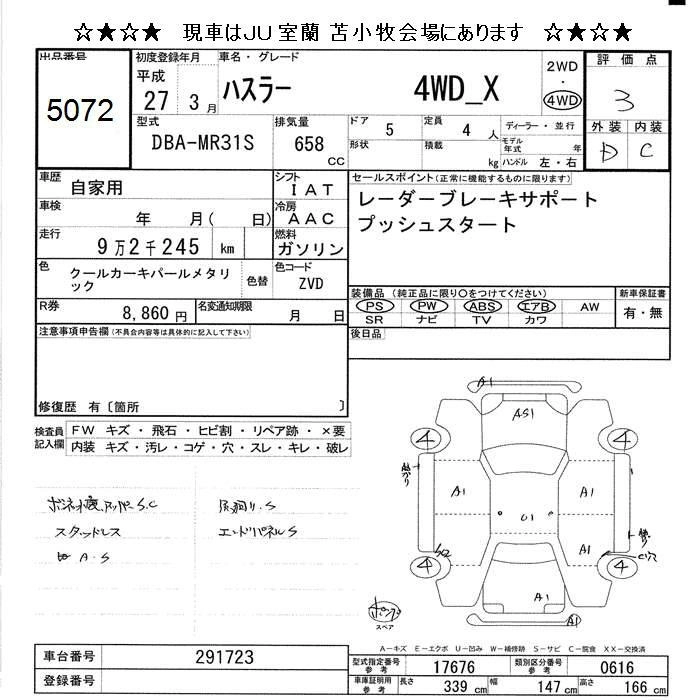 ☆★☆★ 現車はJU室蘭 苫小牧会場にあります ☆★☆★
出品番号
5072
初度登録年月
平成
27 3月
車名・グレード
ハスラー 4WD_X
2WD
・
4WD
評価点
3
外装 内装
D C
型式
DBA-MR31S
排気量
658
CC
ドア 5
定員 4 人
形状
積載 kg
ディーラー・並行
モデル年式 年
ハンドル 左・右
車歴 自家用
シフト IAT
車検 年 月( 日)
冷房 AAC
走行 9万2千245 km
燃料 ガソリン
色
クールカーキパールメタリック
色替
色コード
ZVD
R券 8,860円
名変通知期限 月 日
セールスポイント(正常に機能するものに限ります)
レーダーブレーキサポート
プッシュスタート
装備品(純正品に限り○をつけてください)
PS PW ABS エアB AW
SR ナビ TV カワ
新車保証書
有・無
後日品
注意事項申告欄(不具合内容等は具体的に記入して下さい)
修復歴 有〔箇所 〕
検査員記入欄
FW キズ・飛石・ヒビ割・リペア跡・×要
内装 キズ・汚レ・コゲ・穴・スレ・キレ・破レ
スタッドレス
A.S
エンドパネルS
A1
AS1
4
4
A1
A1
U1
A1
4
4
A1
A1
スペア
A-キズ E-エクボ U-凹み W-補修跡 S-サビ C-腐食 XX-交換済
車台番号 291723
登録番号
型式指定番号参考 17676
類別区分番号参考 0616
車庫証明用参考 長さ 339cm 幅 147cm 高さ 166cm